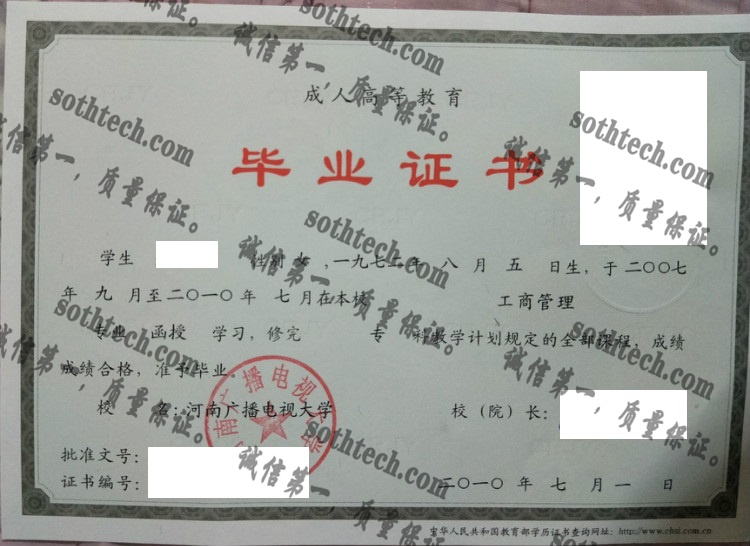 成人高等教育
毕业证书
学生 性别 女 ,一九七二年 八 月 五 日生, 于二〇〇七
年 九 月至二〇一〇年 七月在本校 工商管理
专业 函授 学习, 修完 专 科教学计划规定的全部课程, 成绩
成绩合格, 准予毕业。
校 名: 河南广播电视大学 校(院)长:
批准文号:
证书编号: 二〇一〇年 七 月 一 日
中华人民共和国教育部学历证书查询网址: http://www.chsi.com.cn
南广播电视大学
sothtech.com
诚信第一,质量保证。
sothtech.com
诚信第一,质量保证。
sothtech.com
诚信第一,质量保证。
sothtech.com
诚信第一,质量保证。
sothtech.com
诚信第一,质量保证。
sothtech.com
诚信第一,质量保证。
sothtech.com
诚信第一,质量保证。
sothtech.com
诚信第一,质量保证。